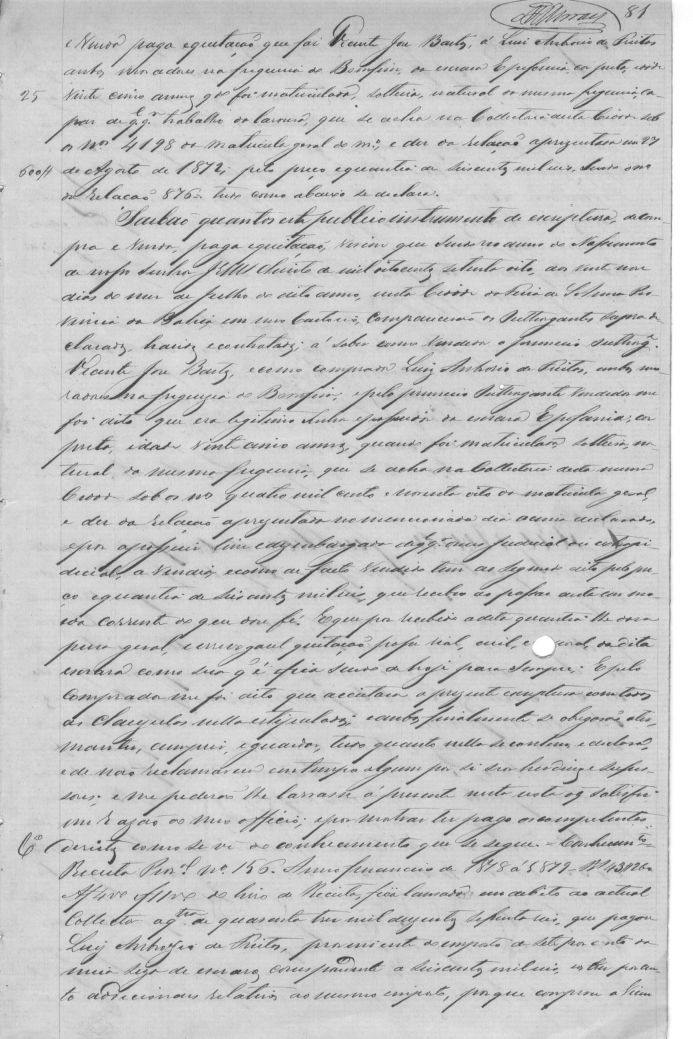 81
e Venda paga e quitação que faz Vicente José Basto, á Luiz Antonio de Freitas
ambos moradores na freguesia do Bomfim, da escrava Epefania, côr preta, idade
25
vinte cinco annos q̃ foi matriculada, solteira, natural da mesma freguesia, ca
paz de q.q. trabalho da lavoura, que se acha na Collectoria desta Cidade sob
o Nº 4198 da matricula geral do m.º, e dez da relação apresentada em 27
600$
de Agosto de 1872; pelo preço e quantia de seiscentos mil reis, sendo o nº
da relação 876 tudo como abaixo se declara.
Saibão quantos este publico instrumento de escriptura, de com
pra e Venda, paga e quitação, virem que sendo no anno do Nascimento
de nosso Senhor JESUS Christo de mil oitocentos setenta oito, aos vinte nove
dias do mez de Julho do dito anno, nesta Cidade da Feira de Santa Anna Pro
vincia da Bahia em meu Cartorio, comparecerão os Outhorgantes supra de
clarados, havidos e contratados; á saber como vendedor o primeiro outhorg.
Vicente José Basto, e como comprador Luiz Antonio de Freitas, ambos mo
radores na freguesia do Bomfim; e pelo primeiro Outhorgante Vendedor me
foi dito que era legitimo senhor e possuidor da escrava Epefania, côr
preta, idade vinte cinco annos, quando foi matriculada, solteira, na
tural da mesma freguesia, que se acha na Collectoria desta mesma
Cidade sob o nº quatro mil cento e noventa oito da matricula geral,
e dez da relação apresentada no mencionado dia acima declarado,
e por a possuir livre e desembargada de q.q. onus judicial ou extraju
dicial, a vendia, e como de facto vendido tem ao segundo dito pelo pre
ço e quantia de seiscentos mil reis, que recebeo ao passar desta em mo
eda corrente do que dou fé. E que por recebido a dita quantia lhe dava
pura geral, e irrevogavel quitação, posse real, civil, e da dita
escrava como sua q' é e fica sendo de hoje para sempre: E pelo
comprador me foi dito que aceitava a presente escriptura com todas
as clausulas nella estipuladas; e ambos finalmente se obrigavão a ter,
manter, cumprir, e guardar, tudo quanto nella se contem, e declara,
e de não reclamarem em tempo algum por si seus herdeiros e sucess
sores; e me pederão lhe lavrasse á presente nesta nota q̃ satisfiz
em razão do meu officio; e por mostrar ter pago os competentes
direitos como se vê do conhecimento que se segue. Conhecim.to
Receita Prov.l nº 156. Anno financeiro de 1878 á 1879. Rs 43$260
do livro de Receita, fica lançado em debito ao actual
Collector a q.tia de quarenta tres mil duzentos sessenta reis, que pagou
Luiz Antonio de Freitas, proveniente do imposto de sete por cento da
meia siza de escravo, correspondente a seiscentos mil reis, e tres por cen
to addicionaes relativo ao mesmo imposto, porque comprou a Vicen